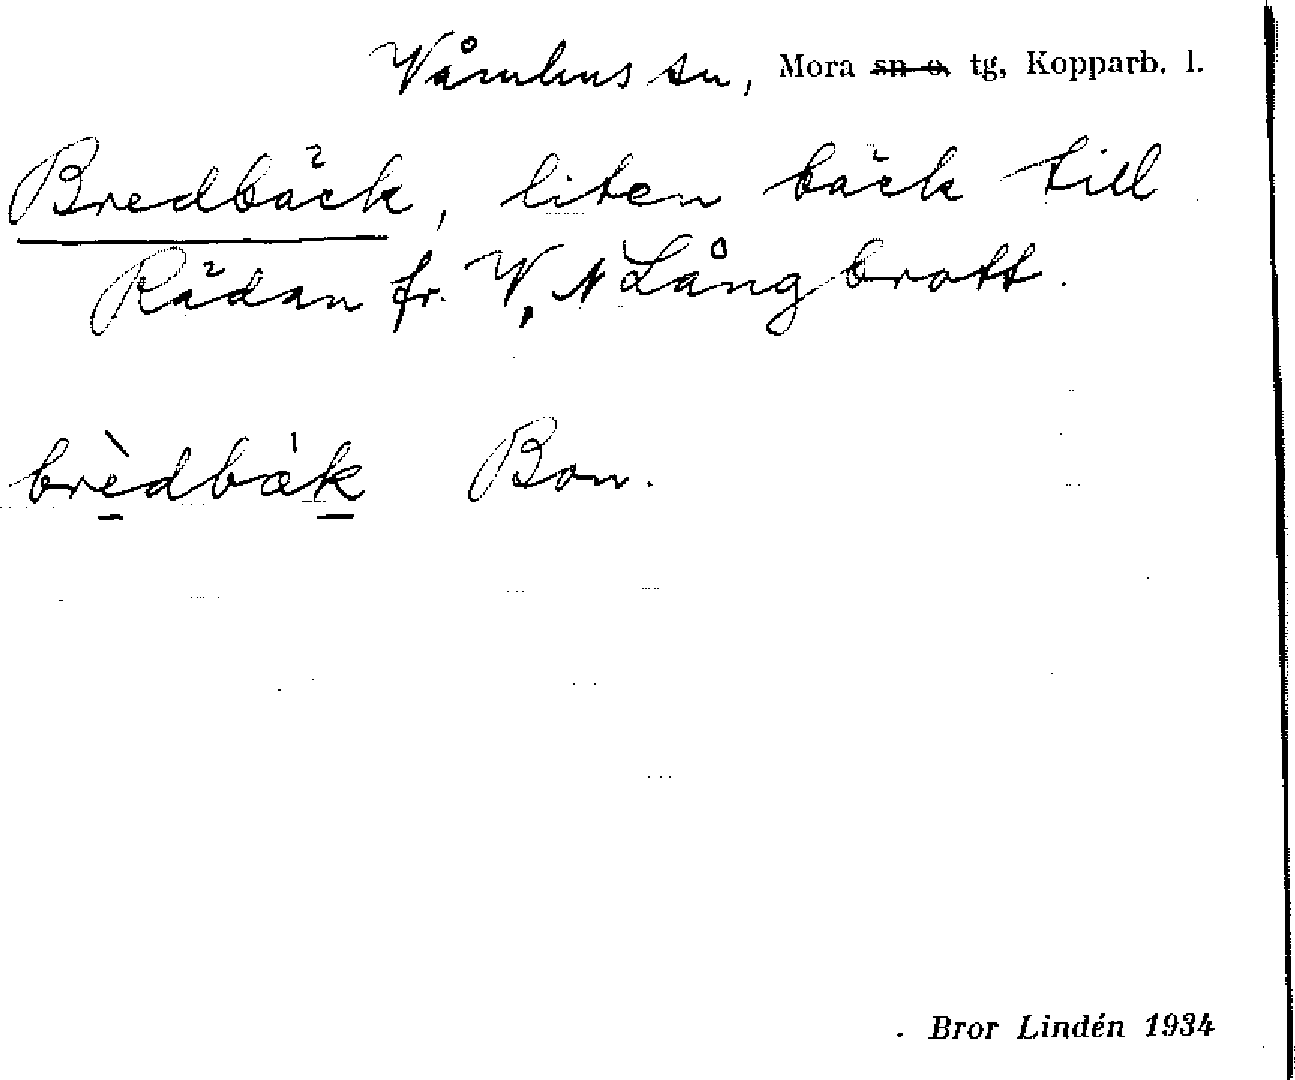 Våmhus sn, Mora sn o. tg, Kopparb. l.
Bredbäck, liten bäck till
Rädan fr. V, N Långbrott.
brèdbák Bon.
Bror Lindén 1934